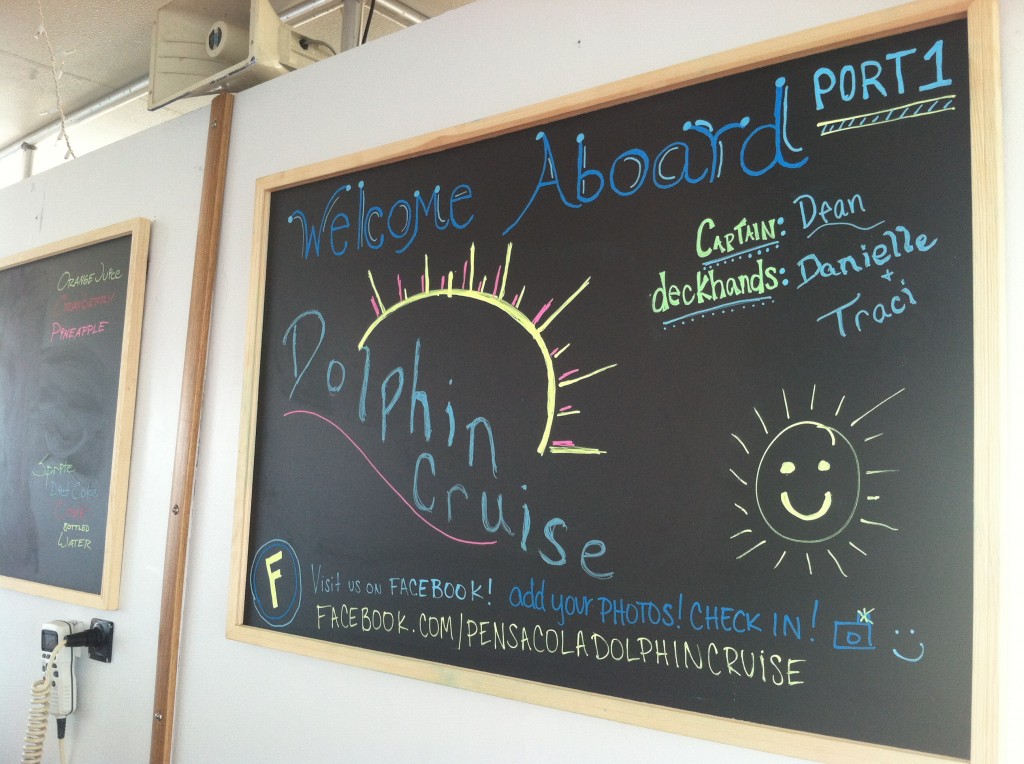 Orange Juice
Cranberry
Pineapple
Sprite
Diet Coke
Coke
Bottled
Water
Welcome Aboard
PORT 1
Captain: Dean
deckhands: Danielle
+
Traci
Dolphin
Cruise
F
Visit us on FACEBOOK! add your PHOTOS! CHECK IN!
FACEBOOK.COM/PENSACOLADOLPHINCRUISE